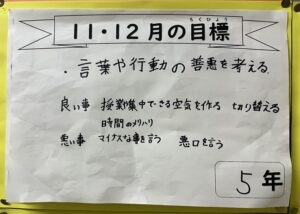 もくひょう
11・12月の目標
・言葉や行動の善悪を考える
良い事 授業や集中できる空気を作る 切り替える
時間のメリハリ
悪い事 マイナスな事を言う 悪口を言う
5年